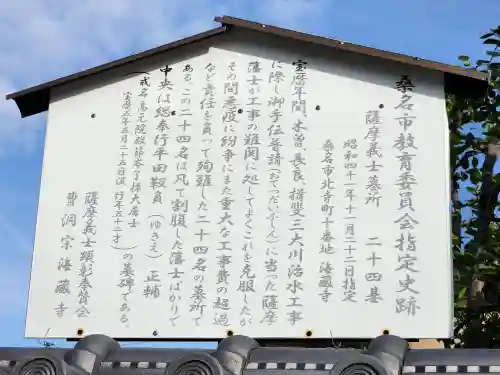 桑名市教育委員会指定史跡
薩摩義士墓所　二十四基
昭和四十一年十一月二十二日指定
桑名市北寺町十番地　海蔵寺
宝暦年間、木曽、長良、揖斐三大川治水工事
に際し御手伝普請(おてつだいぶしん)に当った薩摩
藩士が工事の難関に処してよくこれを克服したが
その間悪疫に紛争にまた重大な工事費の超過
など責任を負って殉難した二十四名の墓所で
ある。この二十四名は凡て割腹した藩士ばかりで
中央は総奉行平田靱負(ゆきえ)正輔
(戒名高元院殿節岑了操大居士
宝暦五年五月二十五日没 行年五十二才)の墓碑である。
薩摩義士顕彰奉賛会
曹洞宗海蔵寺